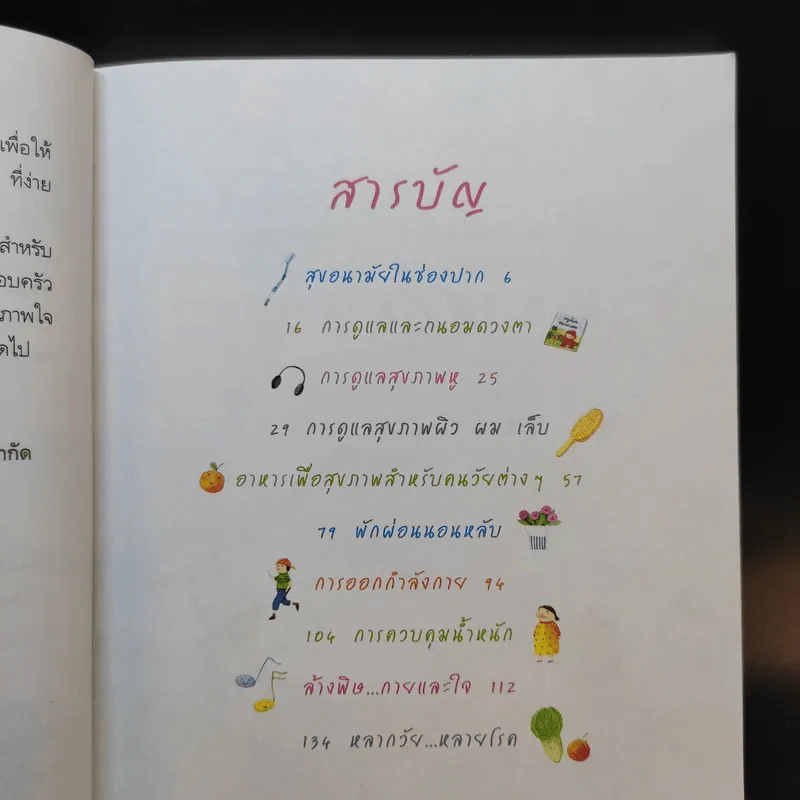 เพื่อให้
ที่ง่าย
สำหรับ
ภาพใจ
สารบัญ
สุขอนามัยในช่องปาก 6
16 การดูแลและถนอมดวงตา
การดูแลสุขภาพหู 25
29 การดูแลสุขภาพผิว ผม เล็บ
อาหารเพื่อสุขภาพสำหรับคนวัยต่างๆ 57
79 พักผ่อนนอนหลับ
การออกกำลังกาย 94
104 การควบคุมน้ำหนัก
ล้างพิษ...กายและใจ 112
134 หลากวัย...หลายโรค